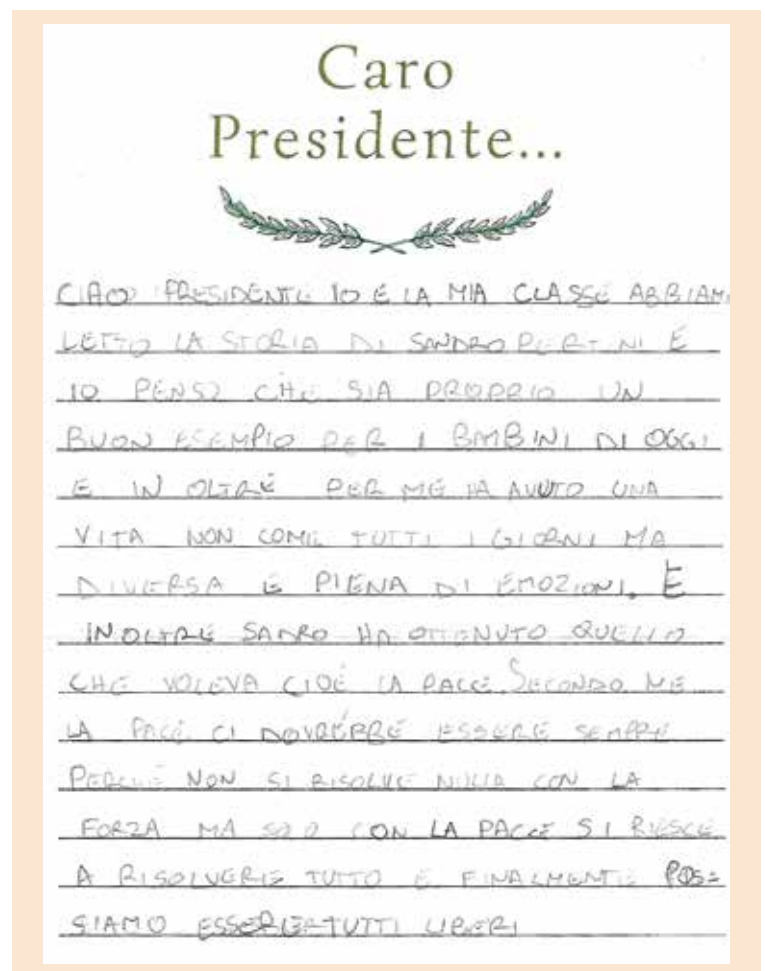 Caro
Presidente...
CIAO PRESIDENTE IO E LA MIA CLASSE ABBIAM
LETTO LA STORIA DI SANDRO PERTINI E
IO PENSO CHE SIA PROPRIO UN
BUON ESEMPIO PER I BAMBINI DI OGGI
E IN OLTRE PER ME HA AVUTO UNA
VITA NON COME TUTTI I GIORNI MA
DIVERSA E PIENA DI EMOZIONI. E
INOLTRE SANRO HA OTTENUTO QUELLO
CHE VOLEVA CIOÈ LA PACE. SECONDO ME
LA PACE CI DOVREBBE ESSERE SEMPRE
PERCHÈ NON SI RISOLVE NULLA CON LA
FORZA MA SOLO CON LA PACE SI RIESCE
A RISOLVERE TUTTO E FINALMENTE POS=
SIAMO ESSERE TUTTI LIBERI